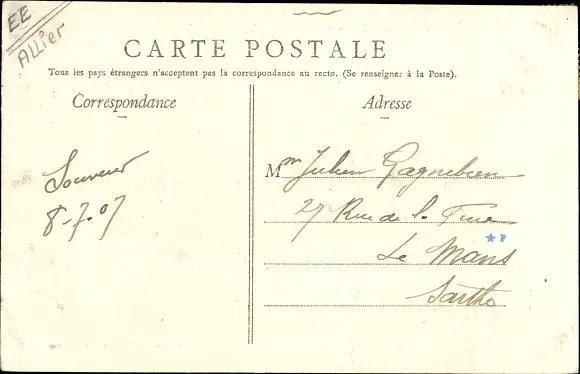 EE
Allier
CARTE POSTALE
Tous les pays étrangers n'acceptent pas la correspondance au recto. (Se renseigner à la Poste).
Correspondance
Adresse
Souvenir
8-7-07
Mme Julien Gagnebien
27 Rue de l.
Le Mans
Sarthe